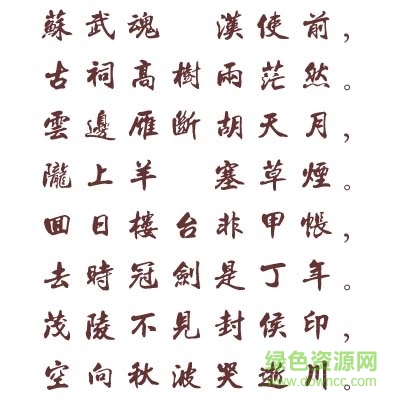 蘇武魂　漢使前，
古祠高樹兩茫然。
雲邊雁斷胡天月，
隴上羊　塞草煙。
回日樓台非甲帳，
去時冠劍是丁年。
茂陵不見封侯印，
空向秋波哭逝川。
绿色资源网
www.downcc.com